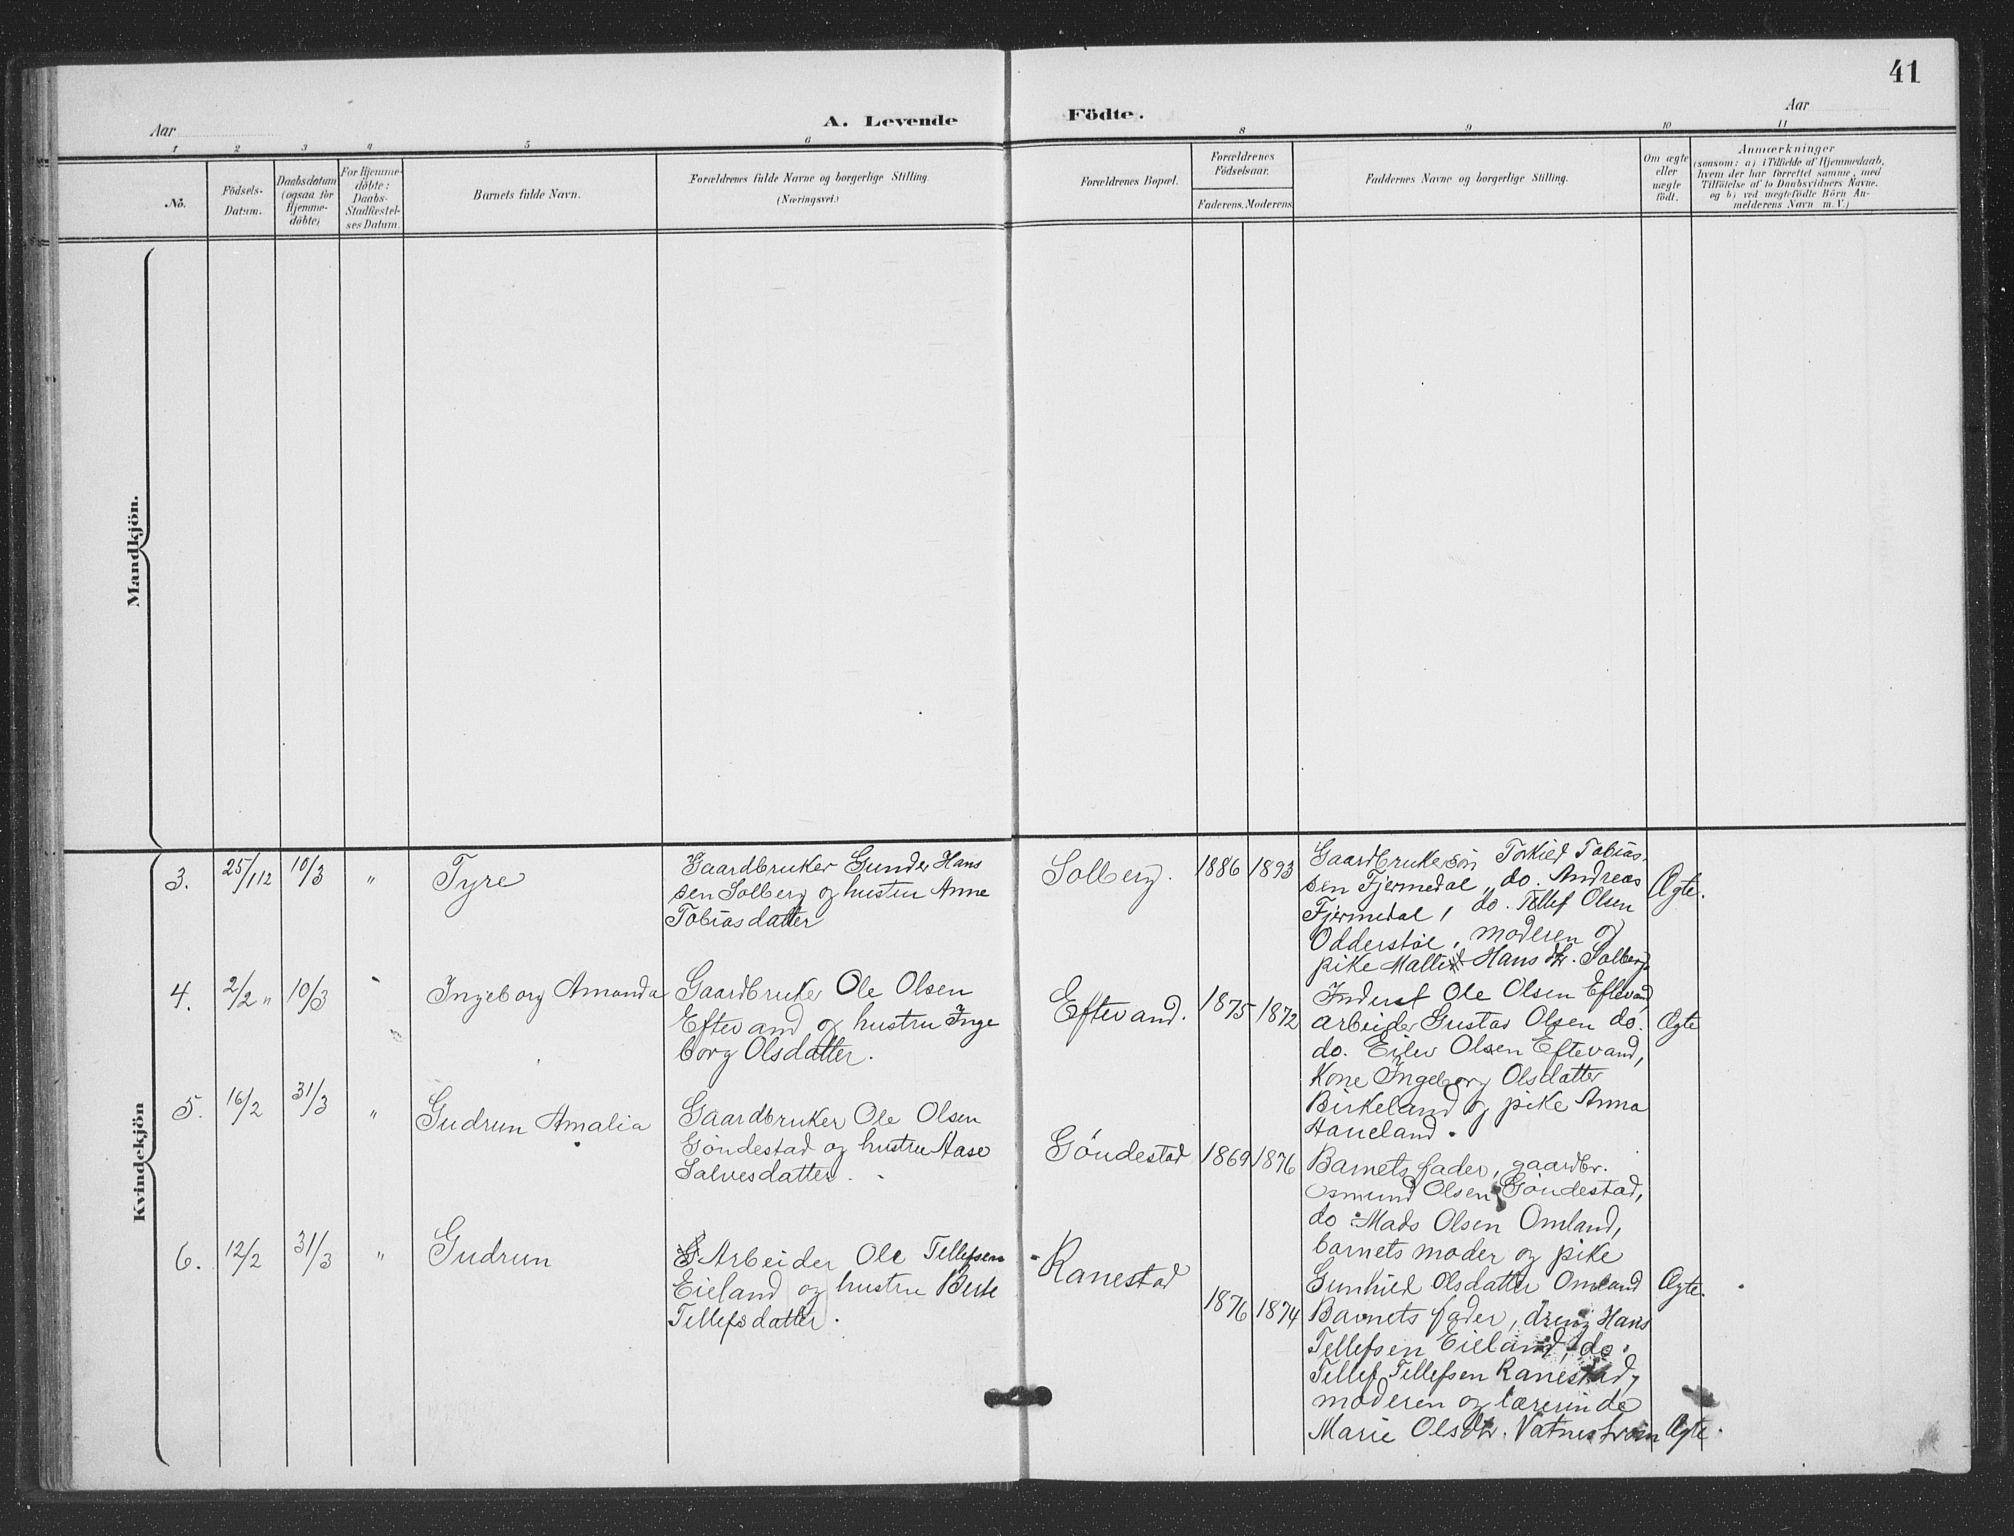 41
Aar
A. Levende
Födte.
Aar
1 2 3 4 5 6 8 9 10 11
No.
Födsels-
Datum.
Daabsdatum
(ogsaa for
Hjemme-
döbte)
For Hjemme-
döbte:
Daabs-
Stadfæstel-
ses Datum.
Barnets fulde Navn.
Forældrenes fulde Navne og borgerlige Stilling.
(Næringsvei.)
Forældrenes Bopæl.
Forældrenes
Födselsaar.
Faderens. Moderens.
Faddernes Navne og borgerlige Stilling.
Om ægte
eller
uægte
födt.
Anmærkninger
(saasom: a) i Tilfælde af Hjemmedaab,
hvem der har forrettet samme, med
Tilföielse af to Daabsvidners Navne,
og b) ved uægtefödte Börn An-
melderens Navn m. V.)
Mandkjön.
Kvindekjön
3.
25/112
10/3
"
Tyre
Gaardbruker Gunder Hans
sen Solberg og hustru Anne
Tobiasdatter
Solberg.
1886
1893
Gaardbrukersön Torkild Tobias-
sen Fjermedal, do. Andreas
Fjermedal, do. Tellef Olsen
Odderstöl, moderen og
pike Hansdtr. Solberg.
Ægte.
4.
2/2 "
10/3
"
Ingeborg Amanda
Gaardbruker Ole Olsen
Eftevand og hustru Inge
borg Olsdatter.
Eftevand.
1875
1872
Inderst Ole Olsen Eftevand,
arbeider Gustav Olsen do.
do. Eilev Olsen Eftevand,
Kone Ingeborg Olsdatter
Birkeland og pike Anna
Haueland.
Ægte
5.
16/2
31/3
"
Gudrun Amalia
Gaardbruker Ole Olsen
Göndestad og hustru Aase
Salvesdatter.
Göndestad
1869
1876
Barnets fader, gaardbr.
Osmund Olsen Göndestad,
do Mads Olsen Omland,
barnets moder og pike
Gunhild Olsdatter Omland
Ægte.
6.
12/2
31/3
"
Gudrun
Arbeider Ole Tellefsen
Eieland og hustru Berte
Tellefsdatter.
Ranestad
1876
1874
Barnets fader, dreng Hans
Tellefsen Eieland, do.
Tellef Tellefsen Ranestad,
moderen og lærerinde
Marie Olsdtr. Vatneström
Ægte.